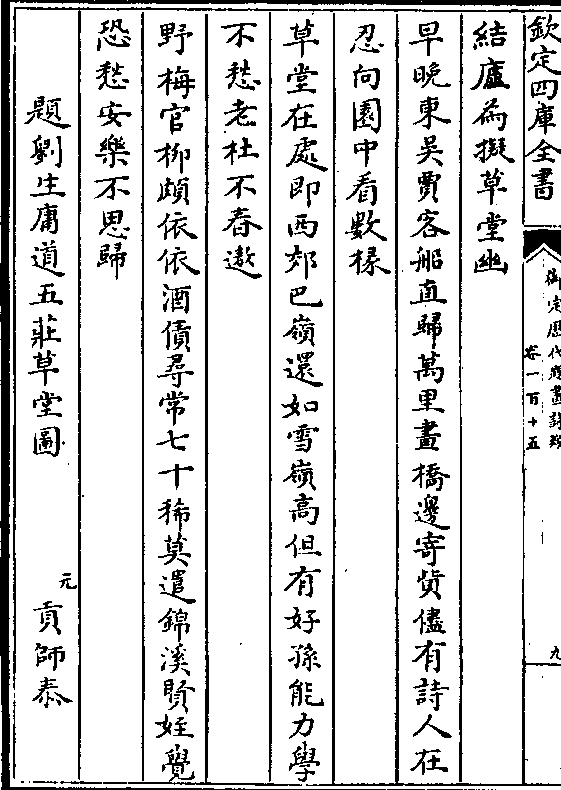 欽定四庫全書
御定歴代題畫詩類
卷一百十五
九
結廬為擬草堂幽
早晚東吳賈客船直歸萬里畫橋邊寄貲儘有詩人在
忍向園中看數椽
草堂在處即西郊巴嶺還如雪嶺高但有好孫能力學
不愁老杜不春遨
野梅官柳頗依依酒債尋常七十稀莫遣錦溪賢姪覺
恐愁安樂不思歸
題劉生庸道五莊草堂圖
元 貢師泰